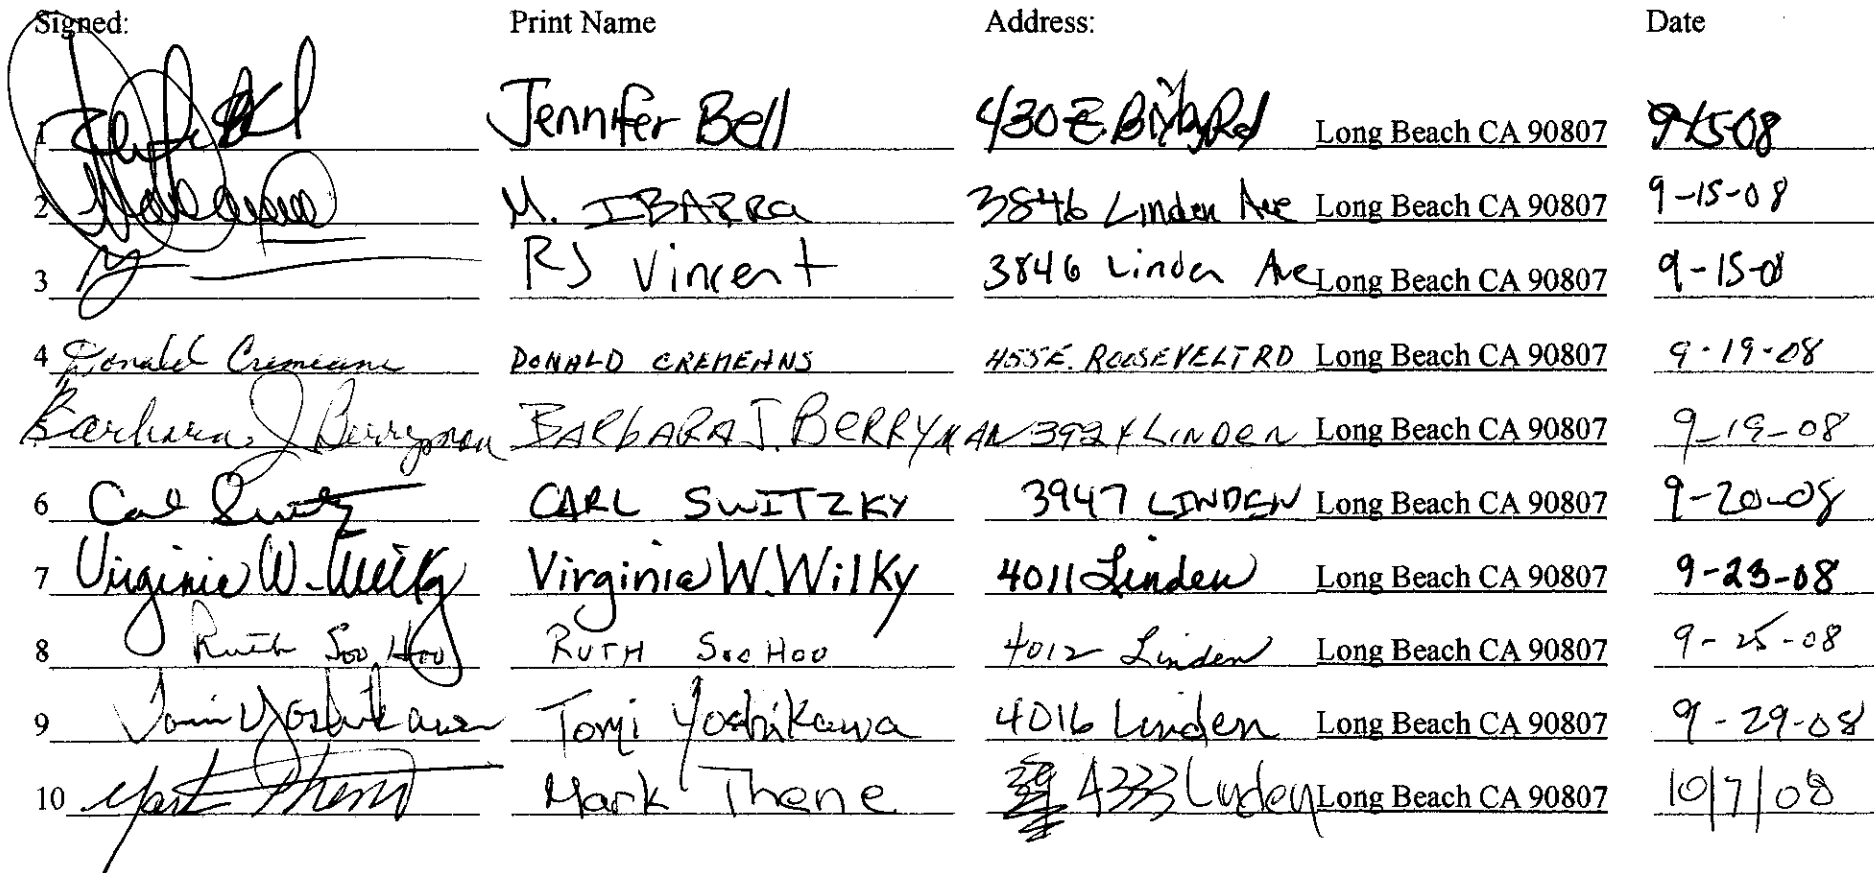 Signed: Print Name Address: Date
1 Jennifer Bell 430 E. Bixby Rd Long Beach CA 90807 9-15-08
2 M. IBARRa 3846 Linden Ave Long Beach CA 90807 9-15-08
3 RJ Vincent 3846 Linden Ave Long Beach CA 90807 9-15-08
4 Donald Cremeans DONALD CREMEANS 455 E. ROOSEVELT RD Long Beach CA 90807 9-19-08
Barbara J Berryman BARbARA J. BeRRYMAN 3924 LINDen Long Beach CA 90807 9-19-08
6 Carl CARL SWITZKY 3947 LINDEN Long Beach CA 90807 9-20-08
7 Virginia W. Wilky Virginia W. Wilky 4011 Linden Long Beach CA 90807 9-23-08
8 Ruth Soo Hoo RUTH Soo Hoo 4012 Linden Long Beach CA 90807 9-25-08
9 Tomi Yoshikawa Tomi Yoshikawa 4016 Linden Long Beach CA 90807 9-29-08
10 Mark Thene Mark Thene 4333 Linden Long Beach CA 90807 10/7/08